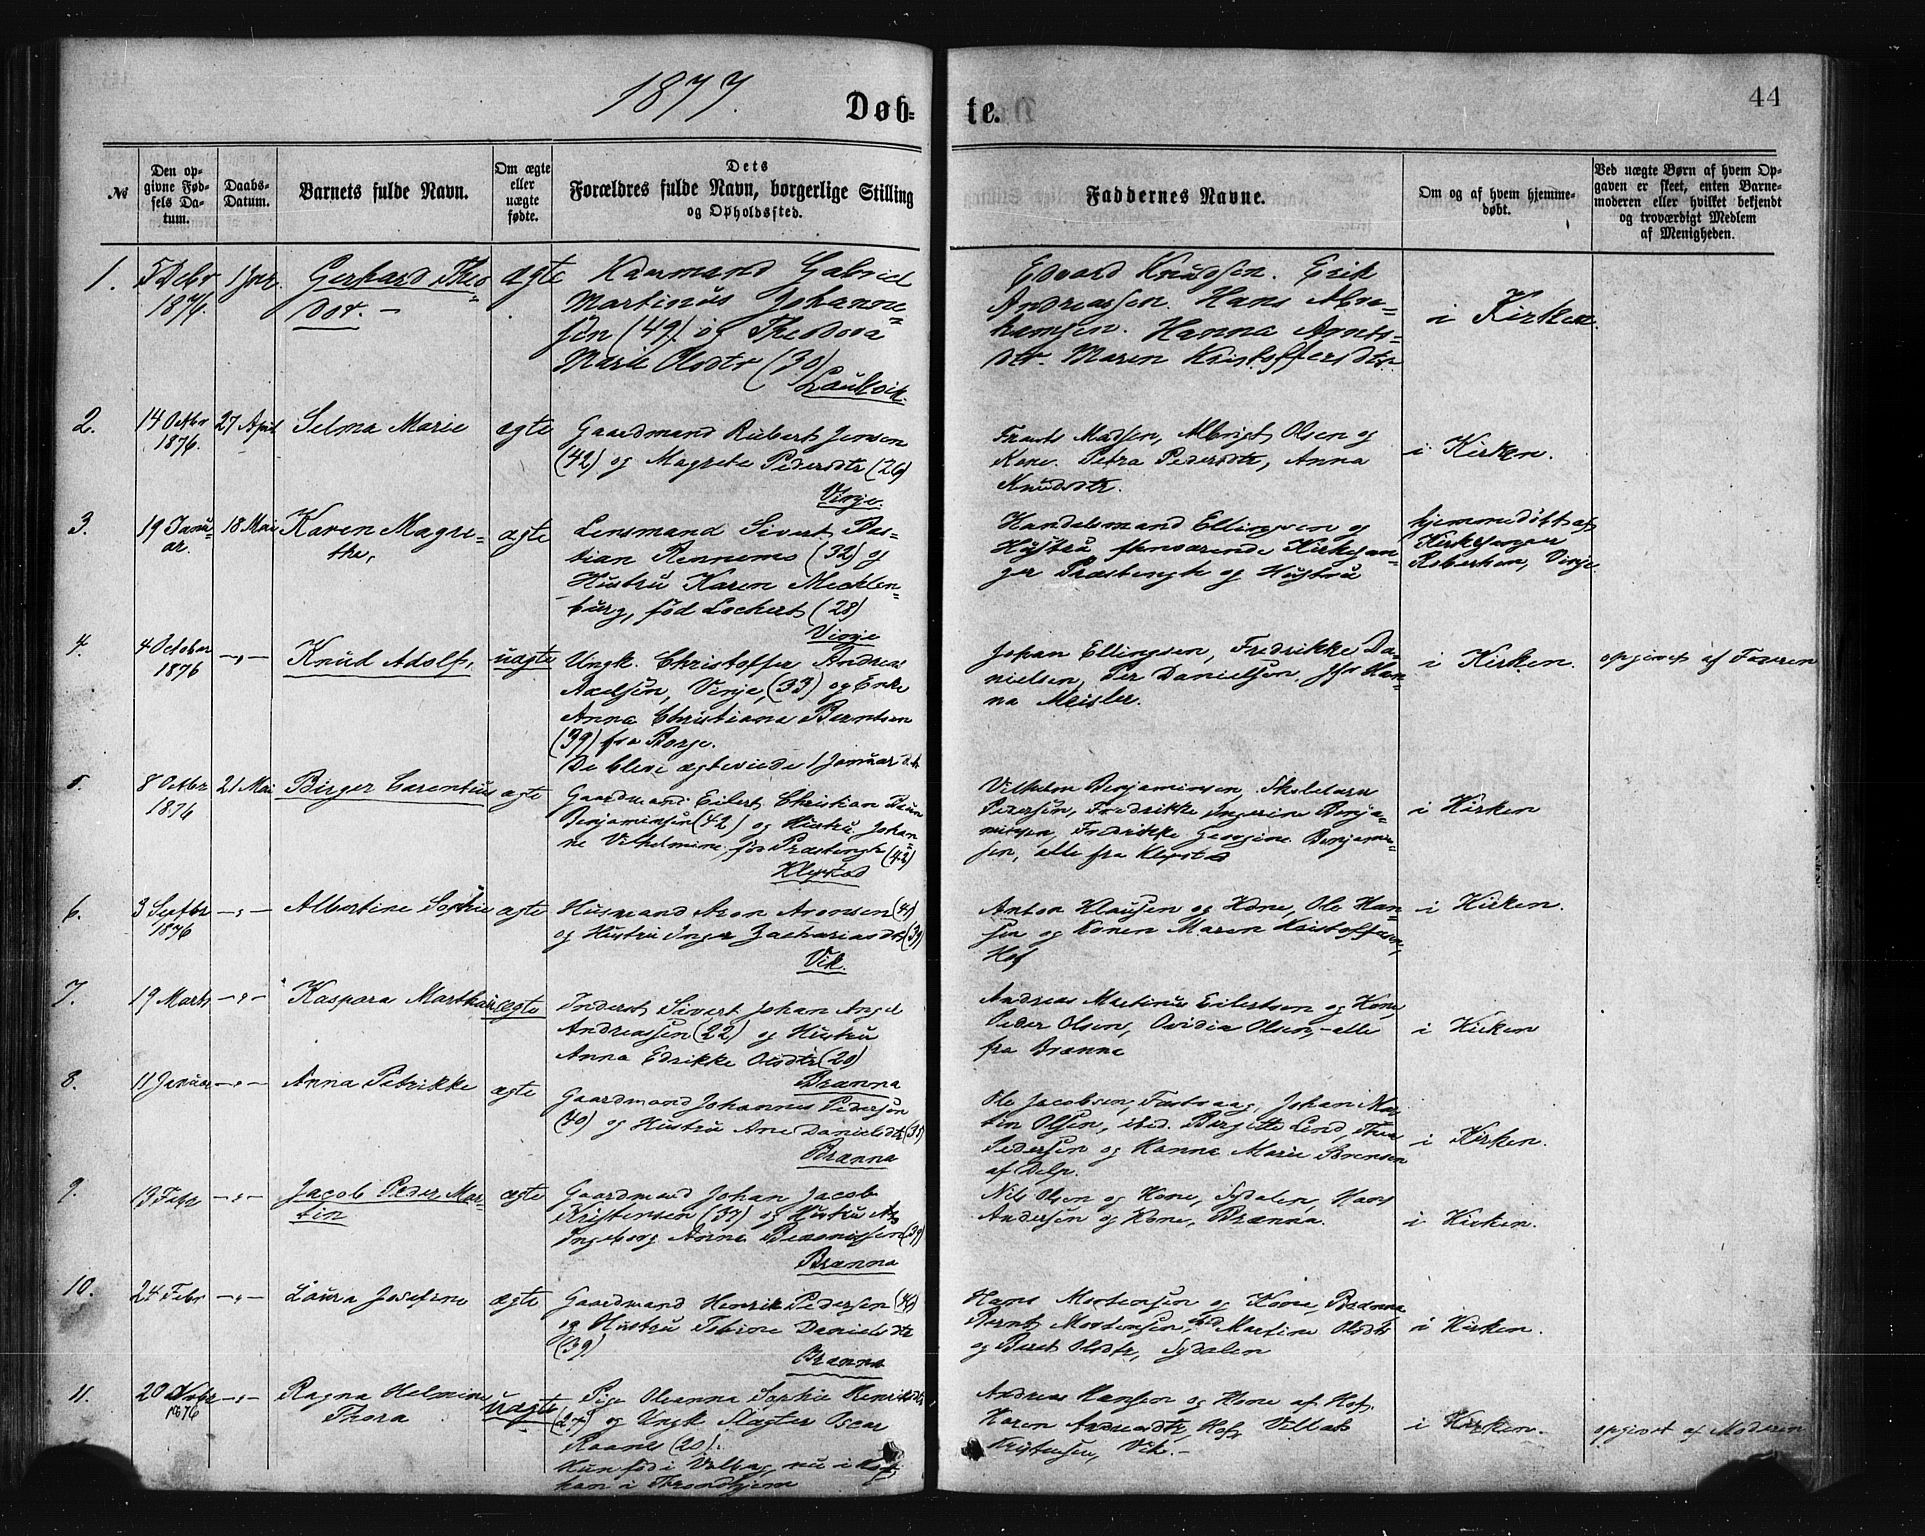 1877.
Døb-
te.
44
№
Den op-
givne Fød-
sels Da-
tum.
Daabs-
Datum.
Barnets fulde Navn.
Om ægte
eller
uægte
fødte.
Dets
Forældres fulde Navn, borgerlige Stilling
og Opholdssted.
Faddernes Navne.
Om og af hvem hjemme-
døbt.
Ved uægte Børn af hvem Op-
gaven er skeet, enten Barne-
moderen eller hvilket bekjendt
og troværdigt Medlem
af Menigheden.
1.
5 Debr
1876.
1 Jnr.
Gerhard Theo-
dor. -
ægte
Kaarmand Gabriel
Martinus Johanne-
sen (49) og Theodora
Marie Olsdtr (30)
Laukvik.
Edvard Knudsen. Erik
Andreassen. Hans Abra-
hamsen. Hanna Arnts-
dtr. Maren Kristoffersdtr.
i Kirken.
2.
14 Octbr
1876.
27 April
Selma Marie
ægte
Gaardmand Rubert Jensen
(42) og Magrete Pedersdtr (26)
Vinje.
Frants Madsen, Albrigt Olsen og
Kone. Petra Pedersdtr, Anna
Knudsdtr.
i Kirken.
3.
19 Janu-
ar.
18 Mai
Karen Magre-
the,
ægte
Lensmand Sivert Bas-
tian Rennemo (32) og
Hustru Karen Mecklen-
burg, fød Lockert (28)
Vinje
Handelsmand Ellingsen og
Hustru, fenværende Kirkesan-
ger Præstengt og Hustru
hjemmedøbt af
Kirkesanger
Robertsen, Vinje.
4.
4 October
1876
-"-
Knud Adolf,
uægte
Ungk. Christoffer Andreas
Axelsen, Vinje, (33) og Enke
Anna Christiana Berntsen
(39) fra Borge.
De bleve ægteviede 1 Januar d.A.
Johan Ellingsen, Fredrikke Da-
nielsen, Per Danielsen, Jfr Han-
na Meisler.
i Kirken.
opgivet af Faderen
5.
8 Octbr
1876
21 Mai
Birger Carentius
ægte
Gaardmand Eilert Christian
Benjaminsen (42) og Hustru Johan-
ne Vilhelmine, fød Præstengt (42)
Klepstad
Vilhelm Benjaminsen, Skolelærer
Petersen, Fredrikke Ingerine Benja-
minsen, Fredrikke Georgine Benjamin-
sen, alle fra Klepstad
i Kirken
6.
3 Septbr
1876
-"-
Albertine Sophie
ægte
Husmand Aron Aronsen (41)
og Hustru Inger Zachariasdtr (39)
Vik.
Anton Klausen og Kone, Ole Han-
sen og Konen Maren Kristoffersen,
Hof
i Kirken.
7.
19 Marts
-"-
Kaspara Marthea
ægte
Inderst Sivert Johan Angel
Andreassen (22) og Hustru
Anna Edrikke Olsdtr (20)
Brænna
Andreas Martinus Eilertsen og Kone,
Peder Olsen, Ovidia Olsen, - alle
fra Brænna
i Kirken
8.
11 Januar
-"-
Anna Petrikke
ægte
Gaardmand Johannes Pedersen
(40) og Hustru Ane Danielsdtr (35)
Brænna
Ole Jacobsen, Festvaag, Johan Mar-
tin Olsen, ibid. Bergitte Lind, Thea
Pedersen og Hanna Marie Sørensen
af Delp.
i Kirken.
9.
13 Febr
-"-
Jacob Peder Mar-
tin
ægte
Gaardmand Johan Jacob
Kristensen (37) og Hustru
Ingeborg Anna Berentsen (39)
Brænna
Nils Olsen og Kone, Sydalen, Hans
Andersen og Kone, Brænna.
i Kirken.
10.
24 Febr
-"-
Laura Josefine
ægte
Gaardmand Henrik Pedersen (46)
og Hustru Tobine Danielsdtr
(39)
Brænna
Hans Mortensen og Kone Brænna,
Bernt Mortensen, ibid Martine Olsdtr
og Beret Olsdtr, Sydalen
i Kirken.
11.
20 Novbr
1876
-"-
Ragna Helmine
Thora
uægte
Pige Oleanna Sophie Henriksdtr
(24) og Ungk. Slagter Oscar
Raanes (20).
Hun fød i Valberg, nu i
han i Throndhjem
Andreas Hansen og Kone af Hof,
Karen Andreasdtr, Hof,
Kristensen, Vik. -
i Kirken.
opgivet af Moderen